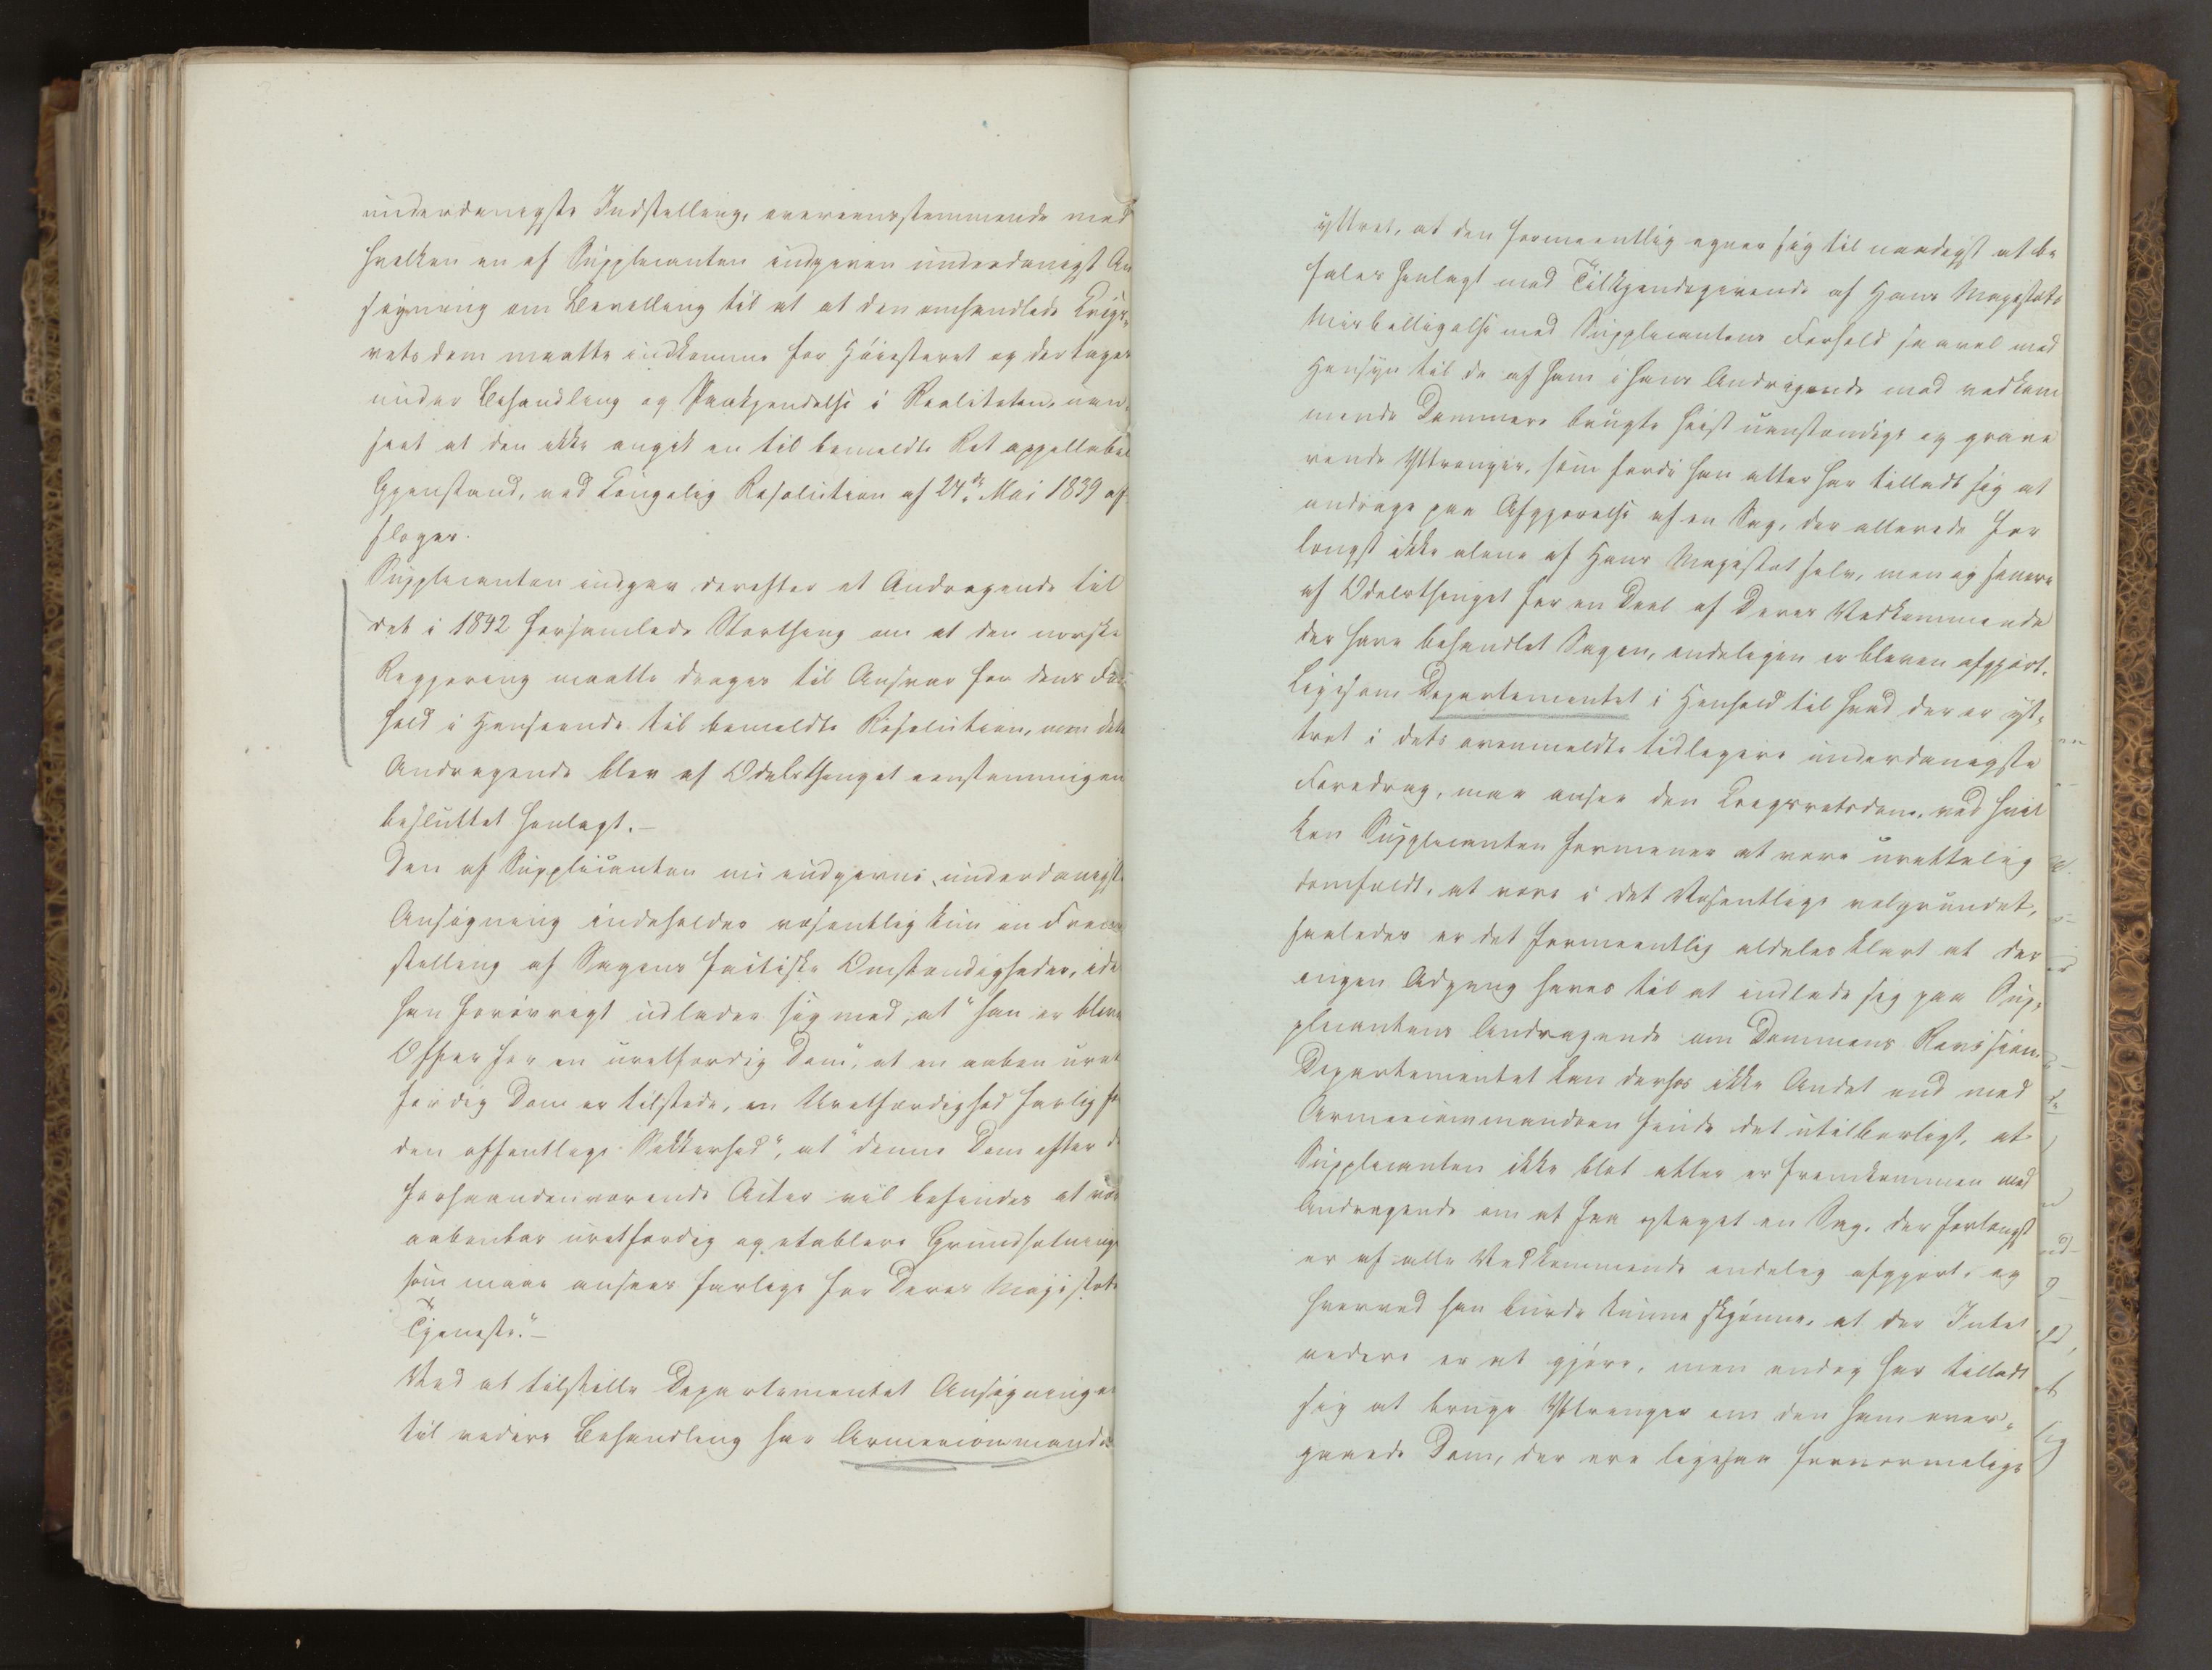 underdanigste Indstilling, overeensstemmende med
hvilken en af Supplicanten indgiven underdanigst An
søgning om Bevilling til at at den omhandlede Krigs„
retsdom maatte indkomme for Høiesteret og der tages
under Behandling og Paakjendelse i Realiteten, uan„
seet at den ikke angik en til bemeldte Ret appellabel
Gjenstand, ved Kongelig Resolution af 24de Mai 1839 af
sloges.
Supplicanten indgav derefter et Andragende til
det i 1842 forsamlede Storthing om at den norske
Regjering maatte drages til Ansvar for dens For
hold i Henseende til bemeldte Resolution, men dette
Andragende blev af Odelsthinget eenstemmigen
besluttet henlagt.–
Den af Supplicanten nu indgivne underdanigste
Ansøgning indeholder væsentlig kun en Frem
stilling af Sagens factiske Omstændigheder, idet
han forøvrigt udlader sig med, at "han er bleven
Offer for en uretfærdig Dom", at en aaben uret
færdig Dom er tilstede, en Uretfærdighed farlig for
den offentlige Sikkerhed", at "denne Dom efter de
forhaandenværende Acter vil befindes at være
aabenbar uretfærdig og etablere Grundsætninger
som maae ansees farlige for Deres Majestæts
Tjeneste."–
Ved at tilstille Departementet Ansøgningen
til videre Behandling har Armeecommandoen
yttret, at den formeentlig egner sig til naadigst at be
fales henlagt med Tilkjendegivende af Hans Majestæts
Misbilligelse med Supplicantens Forhold saavel med
Hensyn til de af ham i hans Andragende mod vedkom
mende Dommere brugte høist uanstændige og grave
rende Yttringer, som fordi han atter har tilladt sig at
andrage paa Afgjørelse af en Sag, der allerede for
længst ikke alene af Hans Majestæt selv, men og senere
af Odelsthinget for en Deel af Deres Vedkommende
der have behandlet Sagen, endeligen er bleven afgjort.
Ligesom Departementet i Henhold til hvad der er yt„
tret i dets ovenmeldte tidligere underdanigste
Foredrag, maa ansee den Krigsretsdom, ved hvil
ken Supplicanten formener at være urettelig
domfældt, at være i det Væsentlige velgrundet,
saaledes er det formeentlig aldeles klart at der
ingen Adgang haves til at indlade sig paa Sup„
plicantens Andragende om Dommens Revision.
Departementet kan derhos ikke Andet end med
Armeecommandoen finde det utilbørligt, at
Supplicanten ikke blot atter er fremkommen med
Andragende om at faa optaget en Sag, der forlængst
er af alle Vedkommende endelig afgjort, og
hvorved han burde kunne skjønne, at der Intet
videre er at gjøre, men endog har tilladt
sig at bruge Yttringer om den ham over„
gaaede Dom, der ere ligesaa fornærmelige